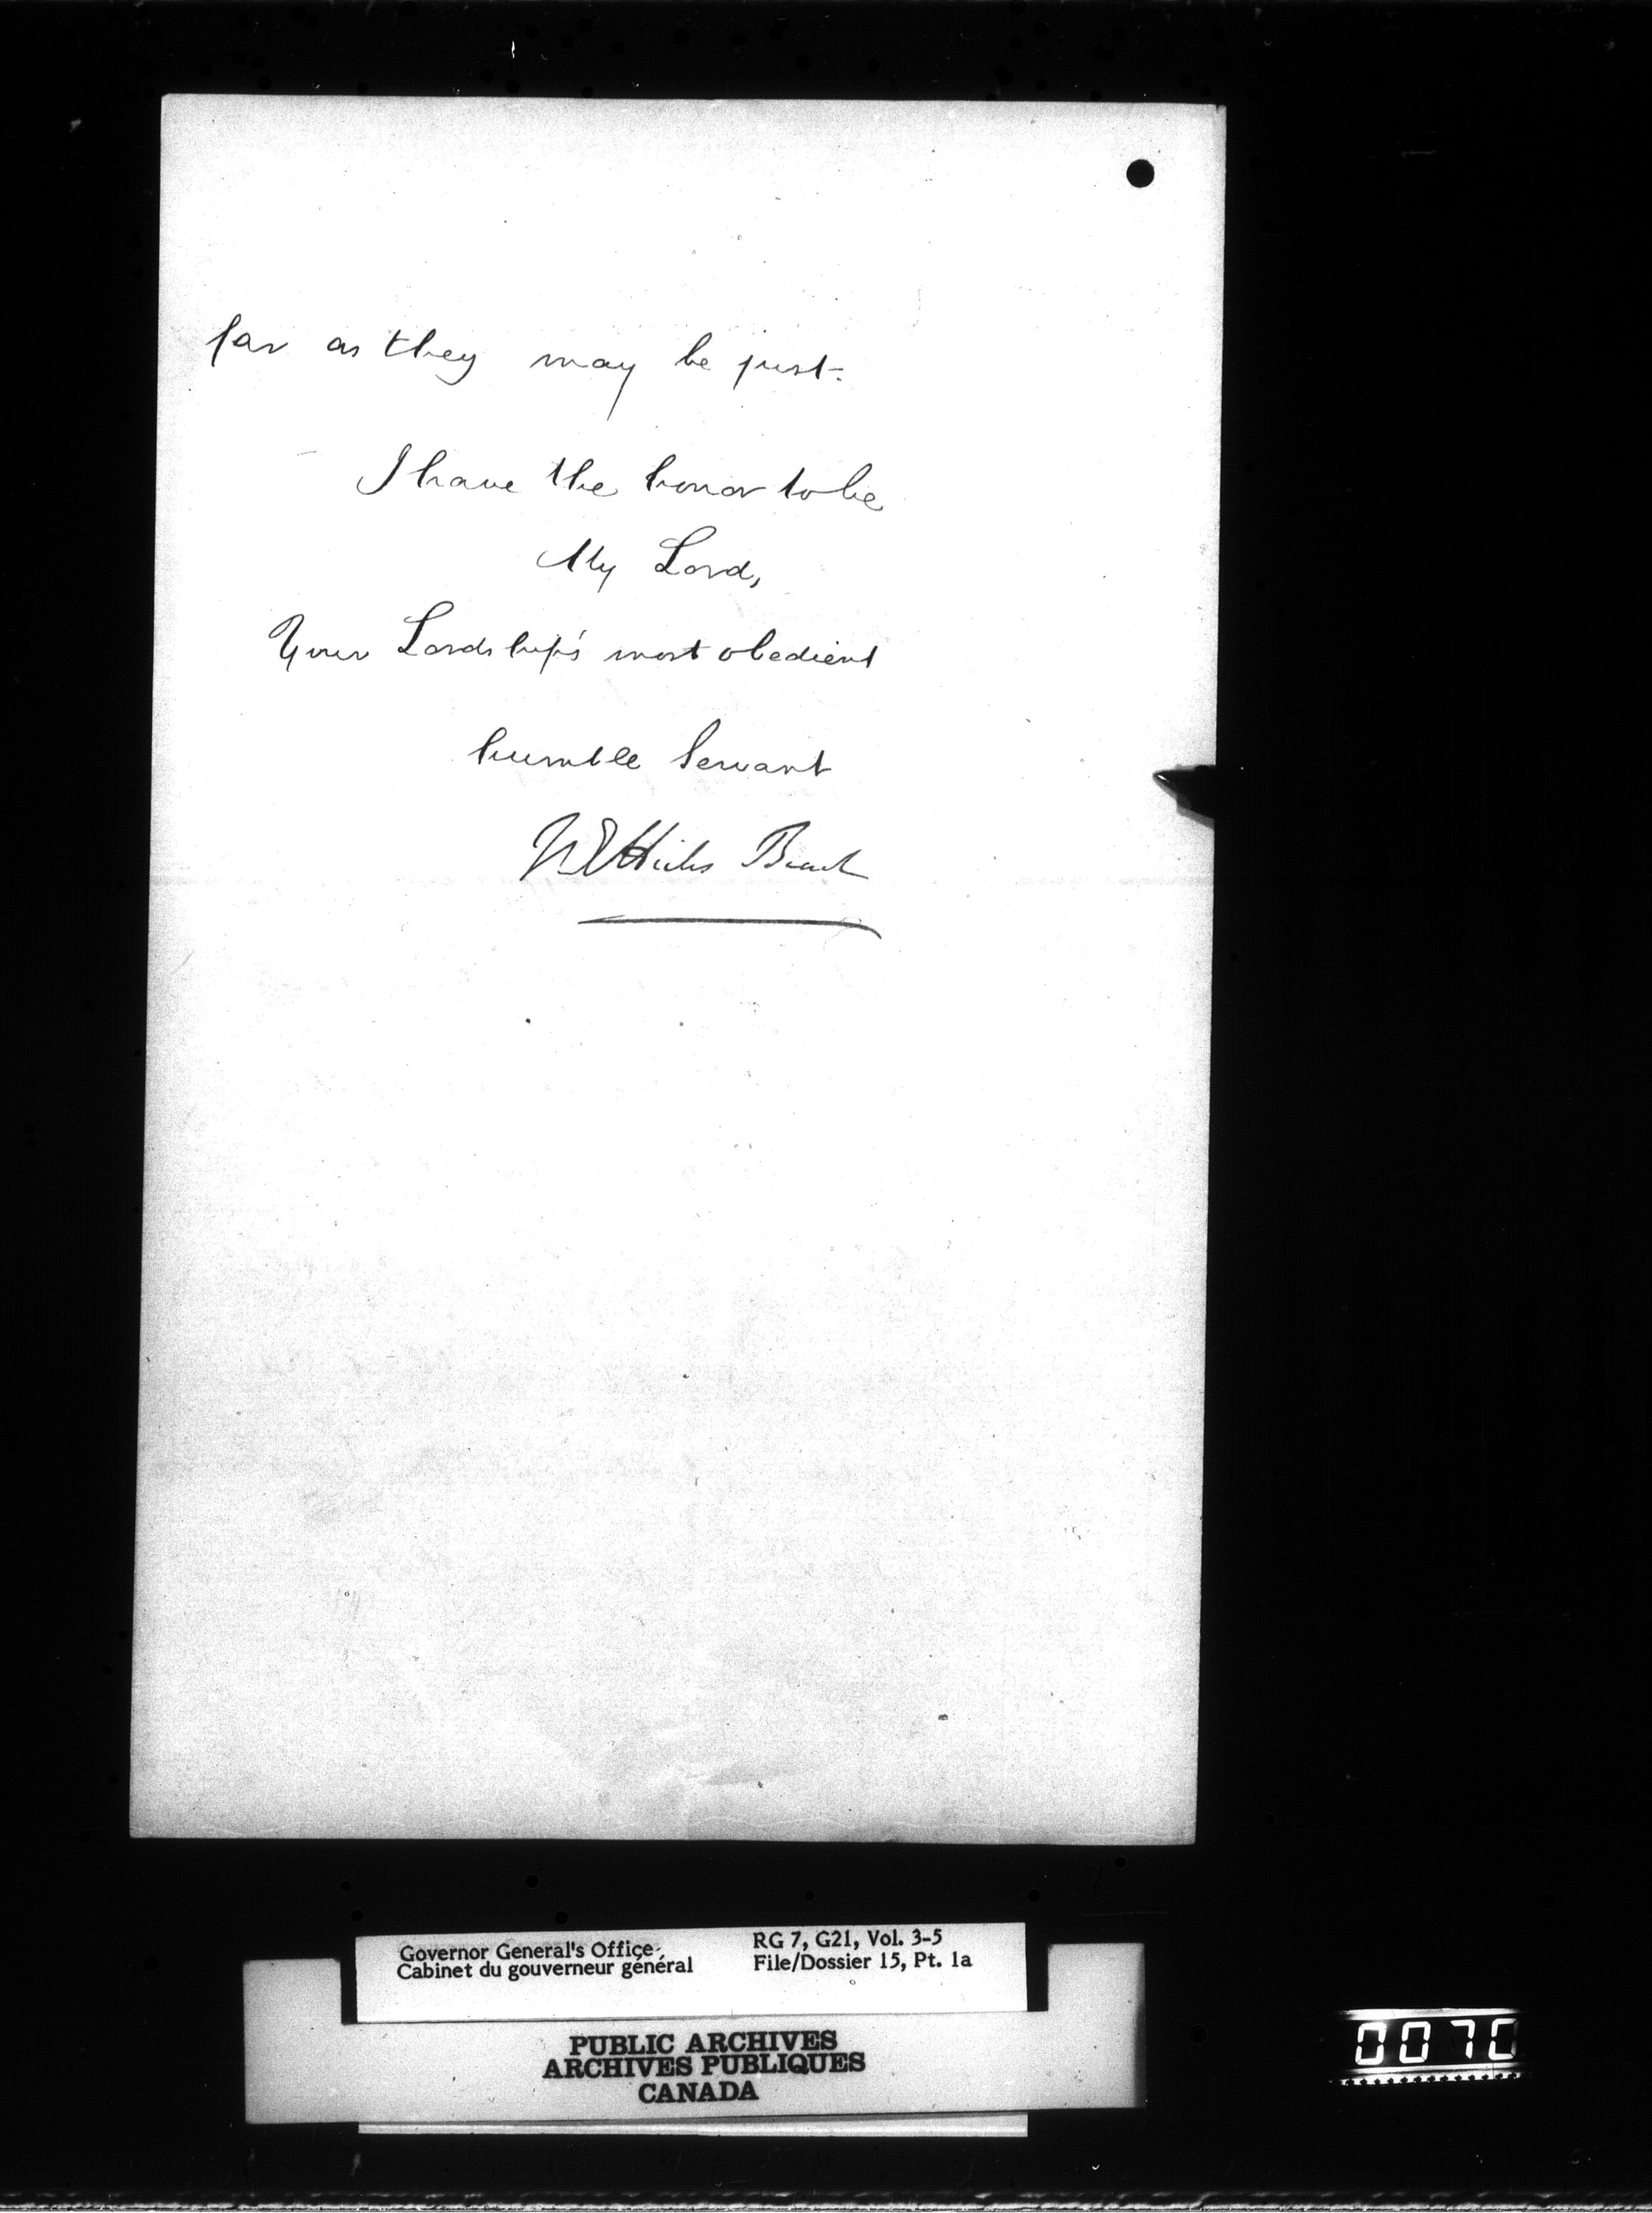 far as they may be just.
I have the honor to be
My Lord,
Your Lordship's most obedient
humble Servant
M E Hicks Beach
Governor General's Office
Cabinet du gouverneur général
RG 7, G21, Vol. 3-5
File/Dossier 15, Pt. 1a
PUBLIC ARCHIVES
ARCHIVES PUBLIQUES
CANADA
0070